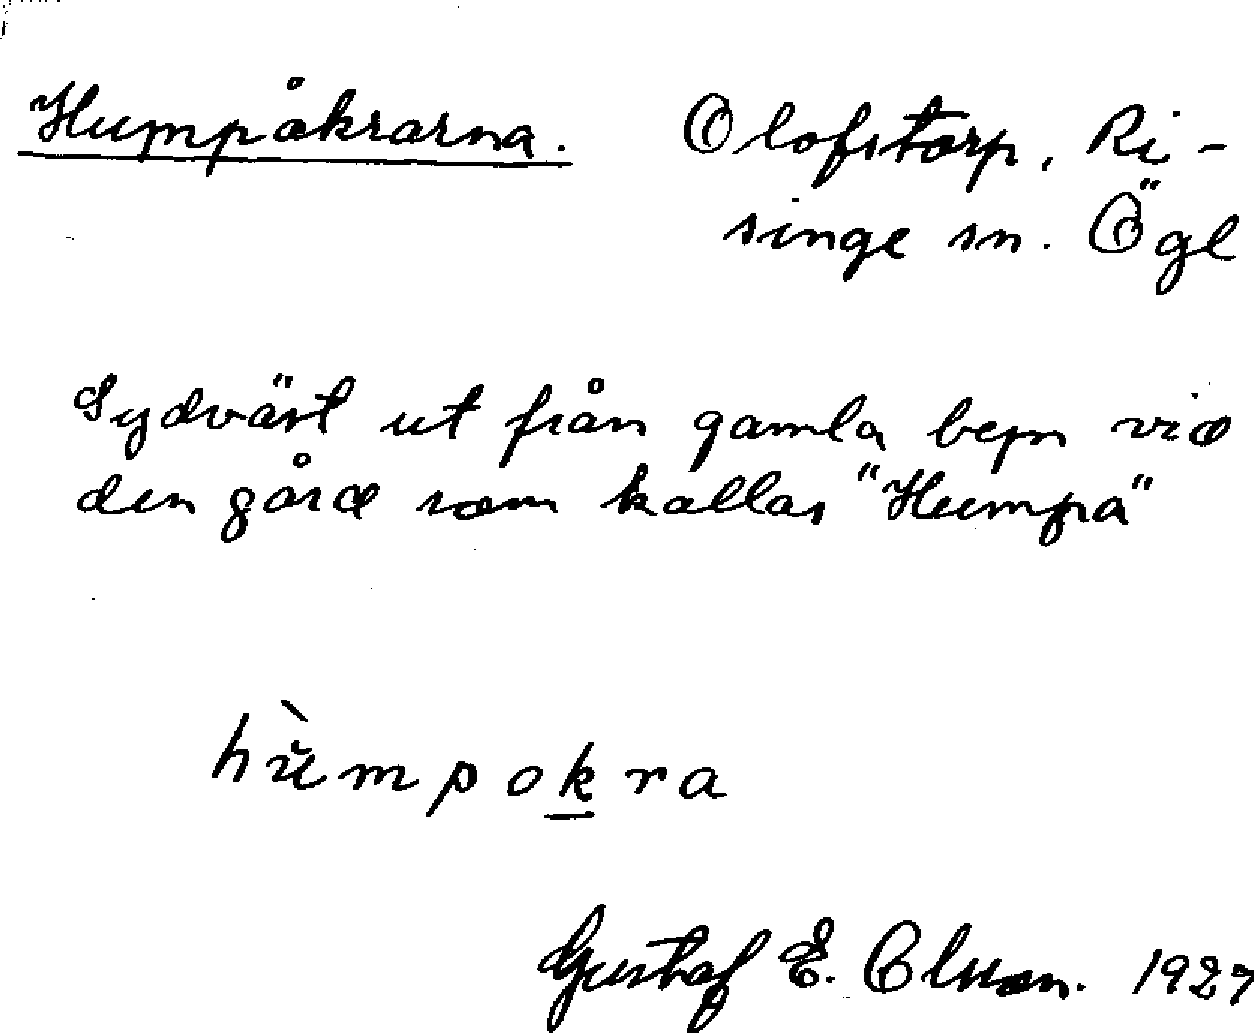 Humpåkrarna. Olofstorp, Ri-
singe sn. Ögl
Sydväst ut från gamla bepn vid
den gård som kallas "Humpa"
hùmpokra
Gustaf E. Olsson. 1927